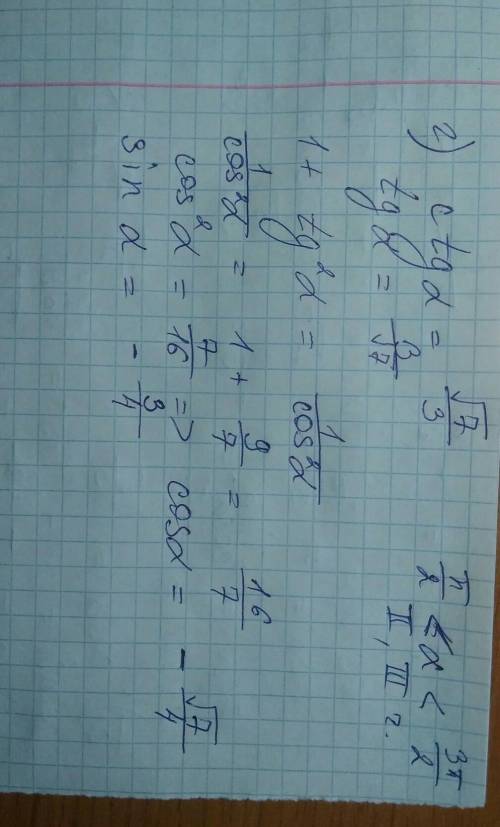 2) ctg α = √7/3    π/2 < α < 3π/2
tg α = 3/√7    II, III г.
1 + tg²α = 1/cos²α
1/cos²α = 1 + 9/7 = 16/7
cos²α = 7/16 => cos α = - √7/4
sin α = - 3/4